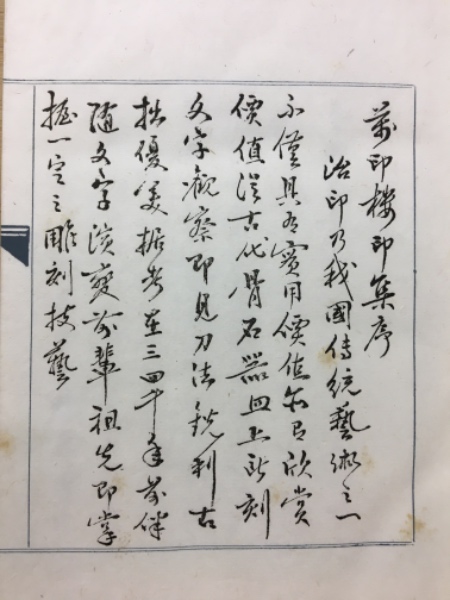 萬印樓印集序
治印乃我國傳統藝術之一
不僅具有實用價值亦有欣賞
價值從古代骨石器皿上所刻
文字觀察即見刀法銳利古
拙優美據考在三四千年前伴
隨文字演變前輩祖先即掌
握一定之雕刻技藝